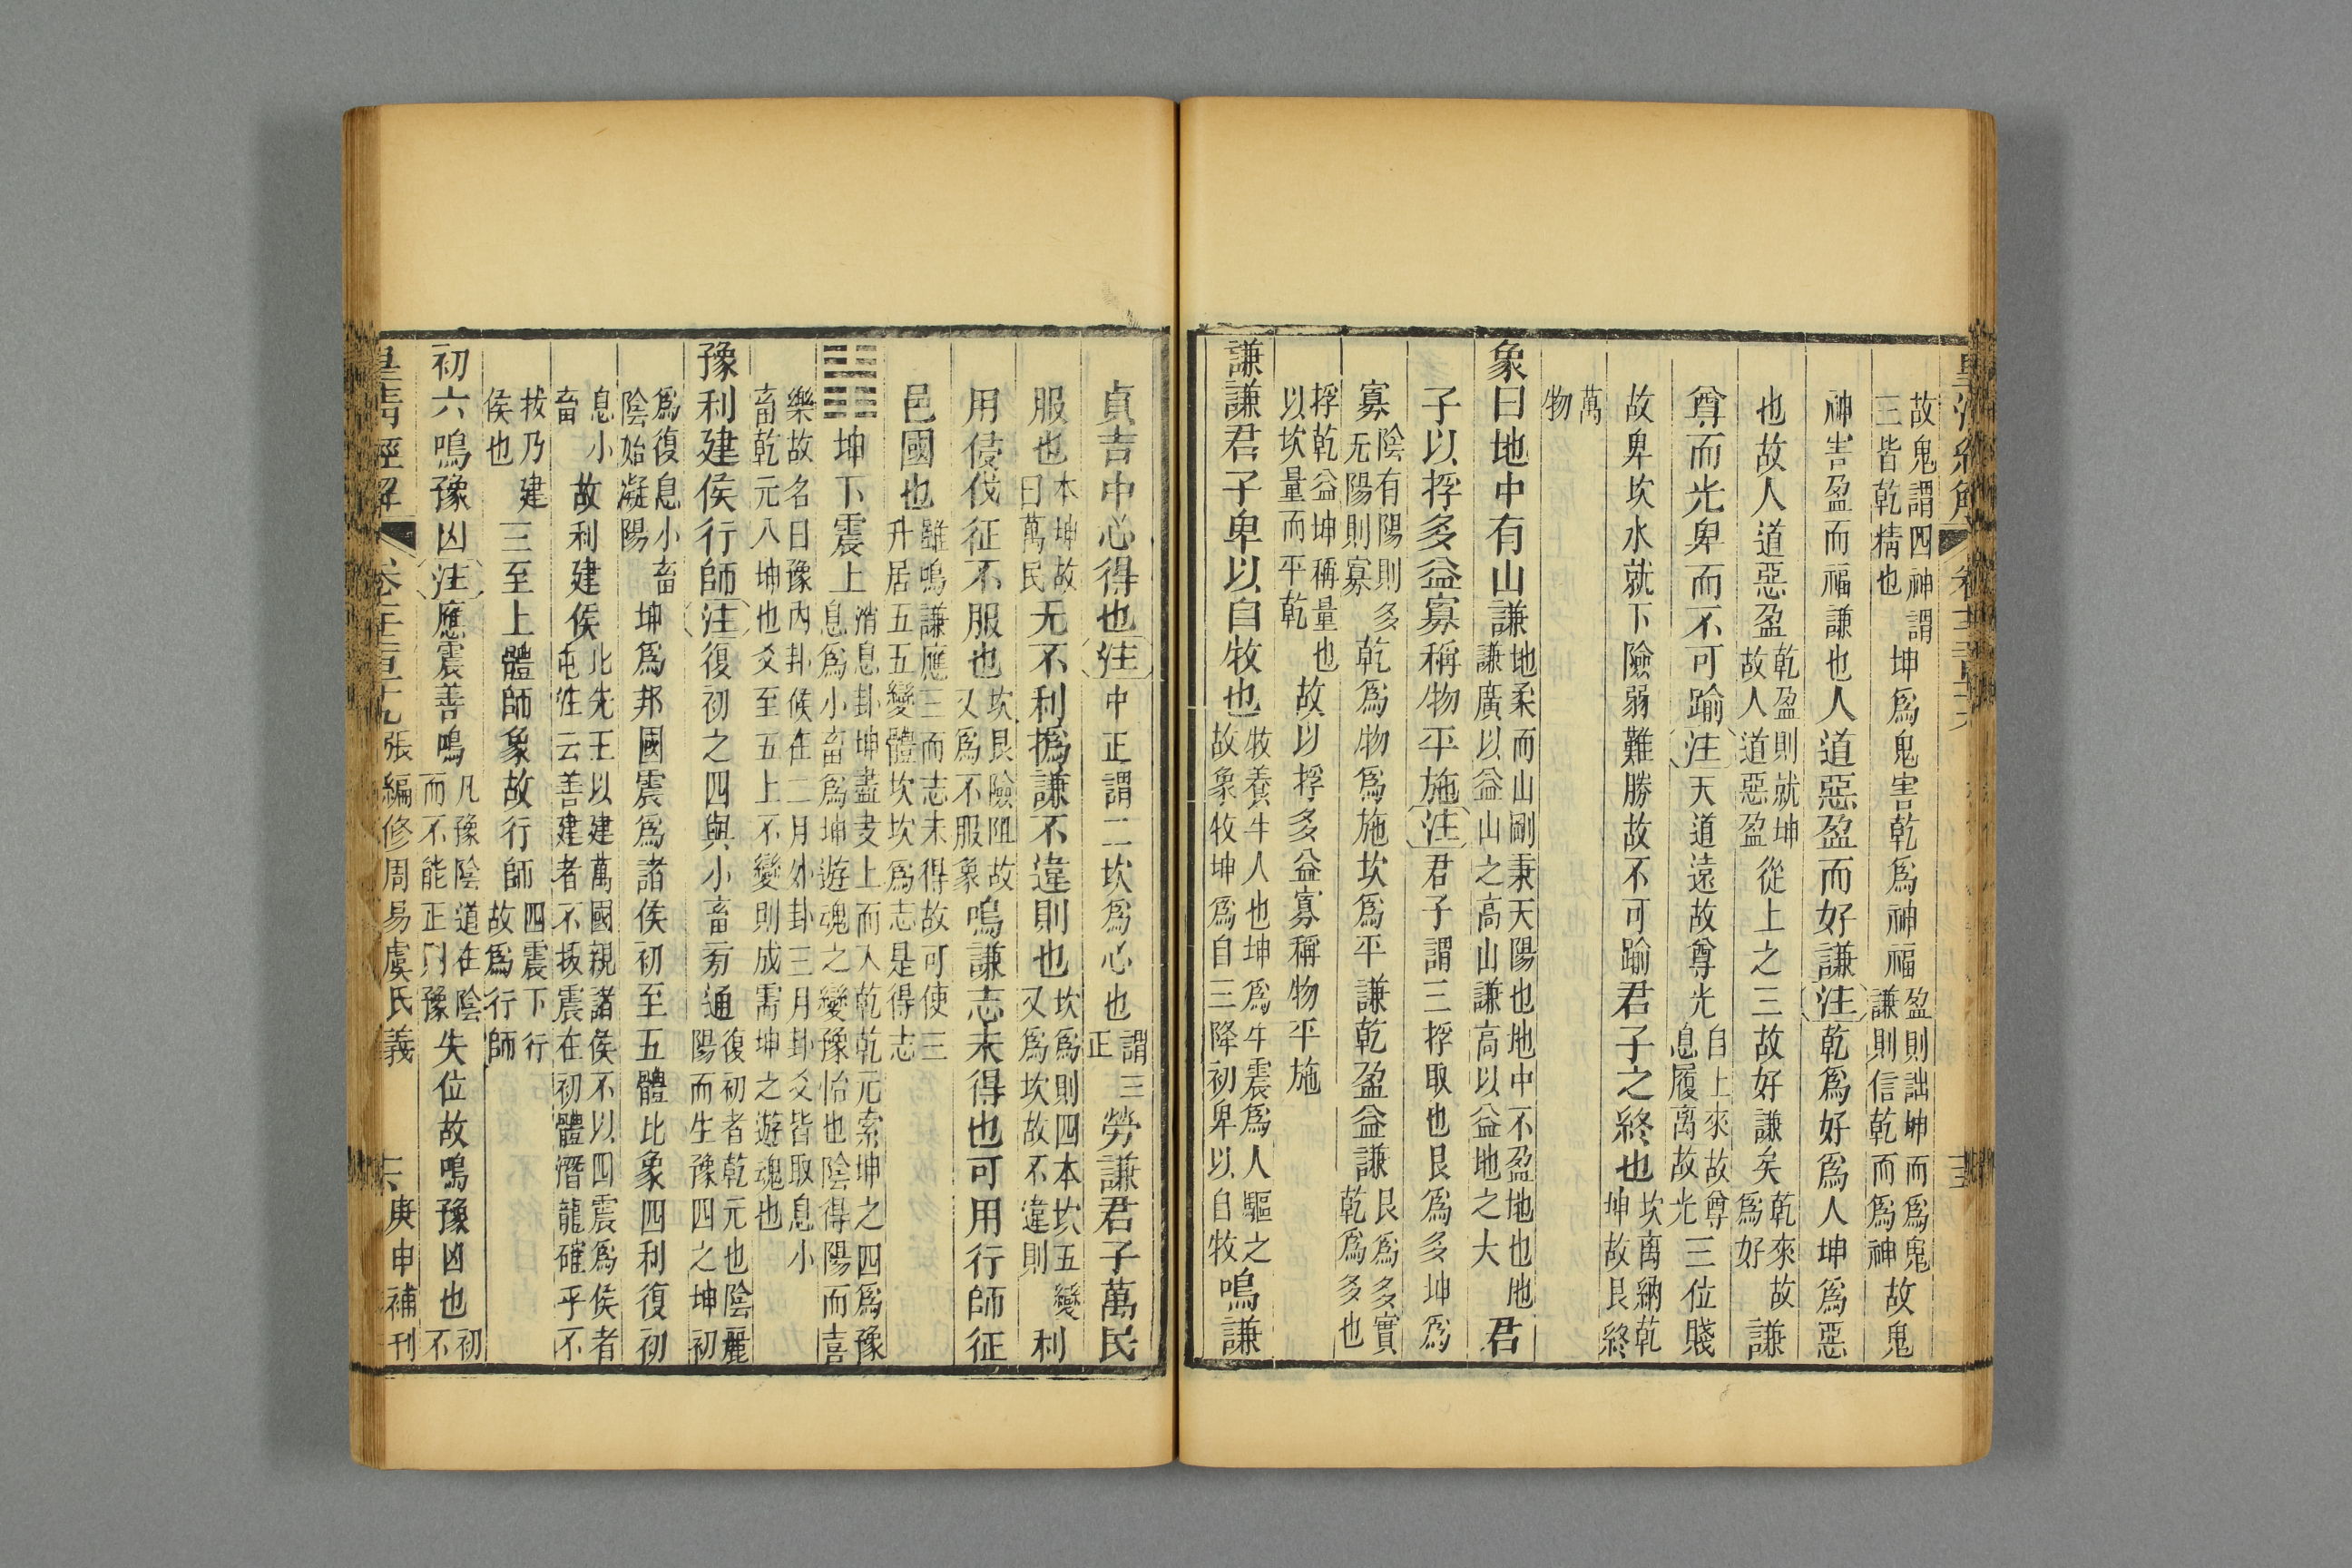 故鬼謂四神謂三皆乾精也坤爲鬼害乾爲神福盈則詘坤而爲鬼謙則信乾而爲神故鬼
神害盈而福謙也人道惡盈而好謙注乾爲好爲人坤爲惡
也故人道惡盈乾盈則就坤故人道惡盈從上之三故好謙矣乾來故爲好謙
尊而光卑而不可踰注天道遠故尊光自上來故尊息履离故光三位賤
故卑坎水就下險弱難勝故不可踰君子之終也坎离納乾坤故艮終
萬物
象曰地中有山謙地柔而山剛秉天陽也地中不盈地也地謙廣以益山之高山謙高以益地之大君
子以捊多益寡稱物平施注君子謂三捊取也艮爲多坤爲
寡陰有陽則多无陽則寡乾爲物爲施坎爲平謙乾盈益謙艮爲多實乾爲多也
捊乾益坤稱量也以坎量而平乾故以捊多益寡稱物平施
謙謙君子卑以自牧也牧養牛人也坤爲牛震爲人驅之故象牧坤爲自三降初卑以自牧鳴謙
貞吉中心得也注中正謂二坎爲心也謂三正勞謙君子萬民
服也本坤故曰萬民无不利撝謙不違則也坎爲則四本坎五變又爲坎故不違則利
用侵伐征不服也坎艮險阻故又爲不服象鳴謙志未得也可用行師征
邑國也雖鳴謙應三而志未得故可使三升居五五變體坎坎爲志是得志
䷏坤下震上消息卦坤盡夬上而入乾乾元索坤之四爲豫息爲小畜爲坤遊魂之變豫怡也陰得陽而喜
樂故名曰豫內卦候在二月外卦三月卦爻皆取息小畜乾元入坤也爻至五上不變則成需坤之遊魂也
豫利建侯行師注復初之四與小畜旁通復初者乾元也陰麗陽而生豫四之坤初
爲復息小畜陰始凝陽坤爲邦國震爲諸侯初至五體比象四利復初
息小畜故利建侯比先王以建萬國親諸侯不以四震爲侯者屯注云善建者不拔震在初體潛龍確乎不
拔乃建侯也三至上體師象故行師四震下行故爲行師
初六鳴豫凶注應震善鳴凡豫陰道在陰而不能正則豫失位故鳴豫凶也初不
皇清經解 張編修周易虞氏義 庚申補刊